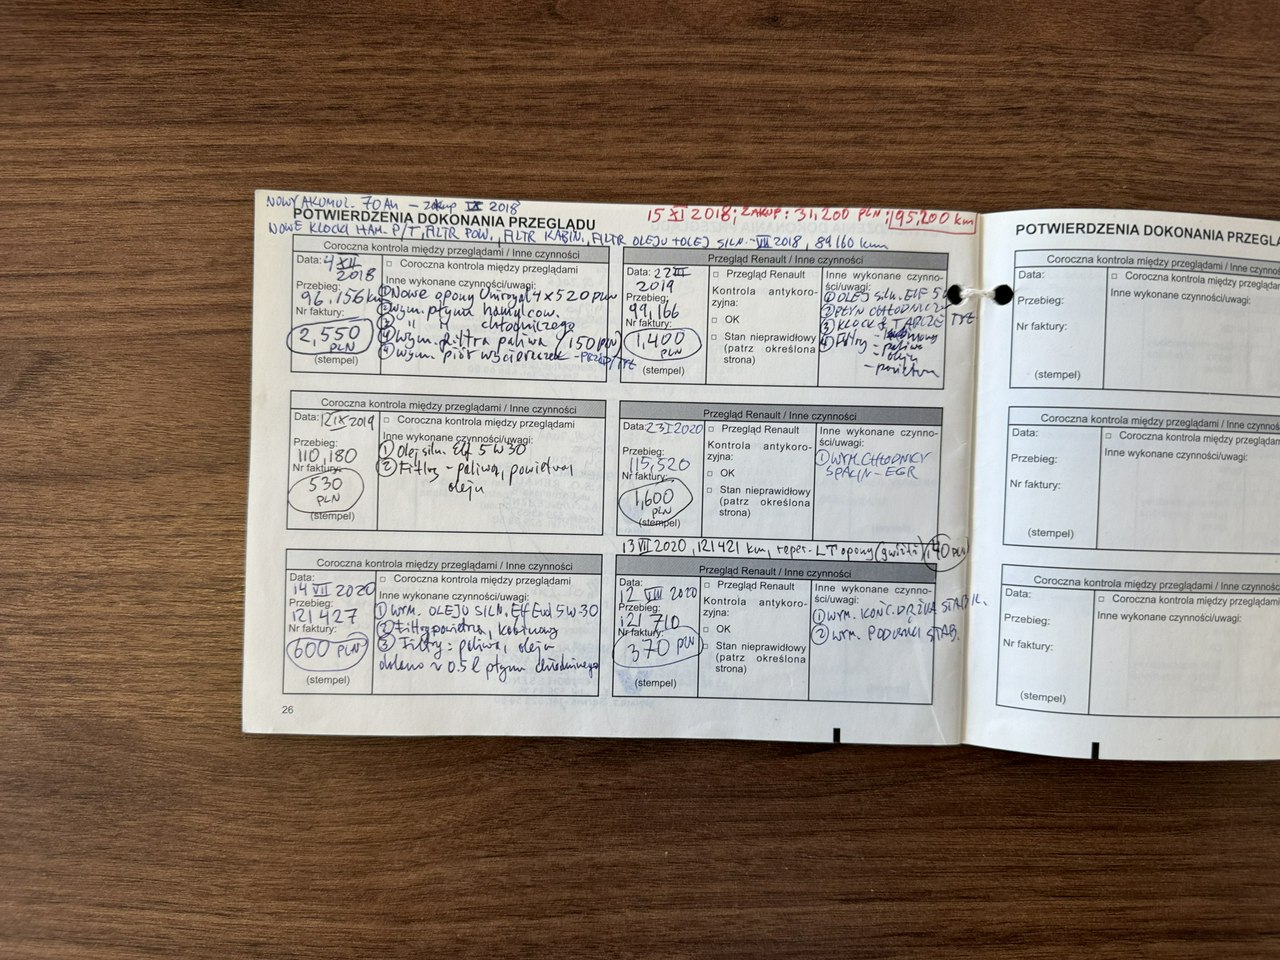 NOWY AKUMUL. 70Ah - zakup IX 2018
15 XI 2018; ZAKUP: 31,200 PLN; 95,200 km
POTWIERDZENIA DOKONANIA PRZEGLĄDU
NOWE KLOCKI HAM. P/T, FILTR POW., FILTR KABIN., FILTR OLEJU + OLEJ SILN. - VII 2018, 89160 km
Coroczna kontrola między przeglądami / Inne czynności
Data: 4 XII 2018
□ Coroczna kontrola między przeglądami
Przebieg: 96.156 km
Inne wykonane czynności/uwagi:
① Nowe opony Uniroyal 4 x 520 PLN
② Wym. płynu hamulcow.
③ " " chłodniczego
④ Wym. filtra paliwa (150 PLN)
④ Wym. piór wycieraczek - PRZÓD/TYŁ
Nr faktury:
2,550 PLN
(stempel)
Przegląd Renault / Inne czynności
Data: 22 III 2019
Przebieg: 99,166
Nr faktury:
1,400 PLN
(stempel)
□ Przegląd Renault
Kontrola antykoro-
zyjna:
□ OK
□ Stan nieprawidłowy
(patrz określona
strona)
Inne wykonane czynno-
ści/uwagi:
① OLEJ siln. Elf 5W
② PŁYN CHŁODNICZ
③ KLOCKI, TARCZE TYŁ
④ Filtry - kabinowy
- paliwa
oleju
- powietrza
Coroczna kontrola między przeglądami / Inne czynności
Data: 12 IX 2019
Przebieg:
110,180
Nr faktury:
530 PLN
(stempel)
□ Coroczna kontrola między przeglądami
Inne wykonane czynności/uwagi:
① Olej siln. Elf 5W30
② Filtry - paliwa, powietrza,
oleju
Przegląd Renault / Inne czynności
Data: 23 I 2020
Przebieg:
115,520
Nr faktury:
1,600 PLN
(stempel)
□ Przegląd Renault
Kontrola antykoro-
zyjna:
□ OK
□ Stan nieprawidłowy
(patrz określona
strona)
Inne wykonane czynno-
ści/uwagi:
① WYM. CHŁODNICY
SPALIN - EGR
13 VII 2020, 121421 km, reper. LT opony (gwóźdź) 40 PLN
Coroczna kontrola między przeglądami / Inne czynności
Data:
14 VII 2020
Przebieg:
121427
Nr faktury:
600 PLN
(stempel)
□ Coroczna kontrola między przeglądami
Inne wykonane czynności/uwagi:
① WYM. OLEJU SILN. Elf Evo 5W30
② Filtry powietrza, kabinowy
③ Filtry: paliwa, oleju
dolano ~ 0.5 l płynu chłodniczego
Przegląd Renault / Inne czynności
Data:
12 VIII 2020
Przebieg:
121710
Nr faktury:
370 PLN
(stempel)
□ Przegląd Renault
Kontrola antykoro-
zyjna:
□ OK
□ Stan nieprawidłowy
(patrz określona
strona)
Inne wykonane czynno-
ści/uwagi:
① WYM. KOŃC. DRĄŻKA STABIL.
② WYM. PODUSZKI STAB.
26
POTWIERDZENIA DOKONANIA PRZEGLĄ
Coroczna kontrola między przeglądami
Data:
□ Coroczna kontrola między przeglądami
Inne wykonane czynności/uwagi:
Przebieg:
Nr faktury:
(stempel)
Coroczna kontrola między przeglądami
Data:
□ Coroczna kontrola między przeglądam
Inne wykonane czynności/uwagi:
Przebieg:
Nr faktury:
(stempel)
Coroczna kontrola między przeglądami
Data:
□ Coroczna kontrola między przegląda
Inne wykonane czynności/uwagi:
Przebieg:
Nr faktury:
(stempel)